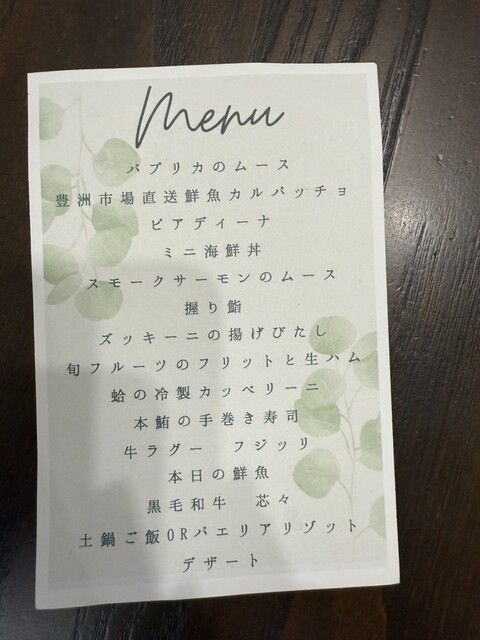 Menu
パプリカのムース
豊洲市場直送鮮魚カルパッチョ
ピアディーナ
ミニ海鮮丼
スモークサーモンのムース
握り鮨
ズッキーニの揚げびたし
旬フルーツのフリットと生ハム
蛤の冷製カッペリーニ
本鮪の手巻き寿司
牛ラグー フジッリ
本日の鮮魚
黒毛和牛 芯々
土鍋ご飯ORパエリアリゾット
デザート